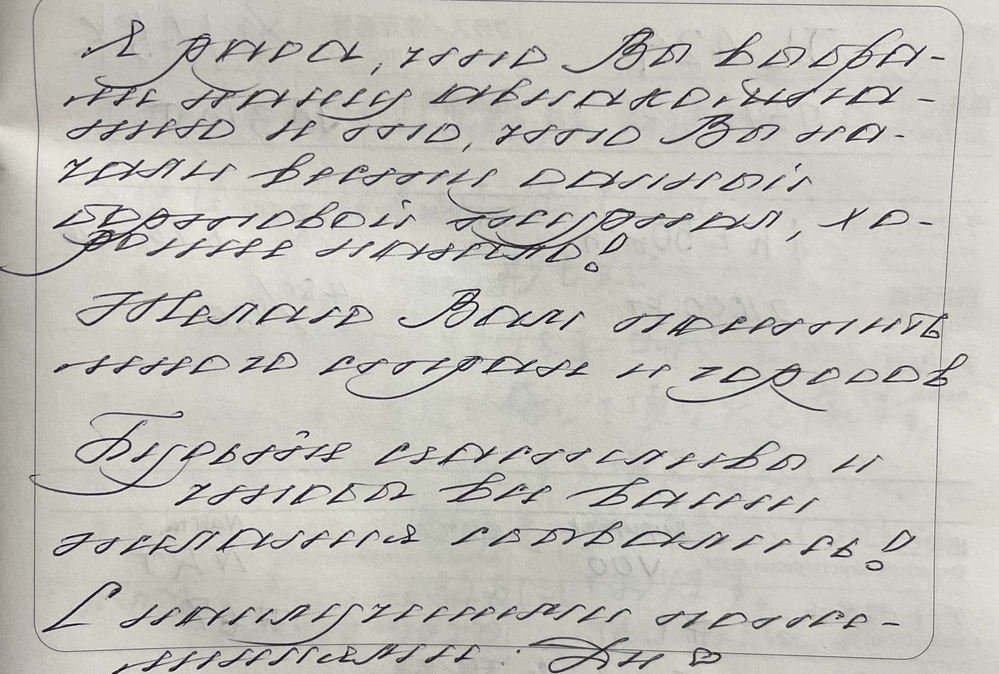 Я рада, что Вы выбра-
ли нашу авиакомпа-
нию и то, что Вы на-
чали вести данный
бортовой журнал, хо-
рошее начало!
Желаю Вам посетить
много стран и городов
Будьте счастливы и
чтобы все ваши
желания сбывались!
С наилучшими поже-
ланиями.